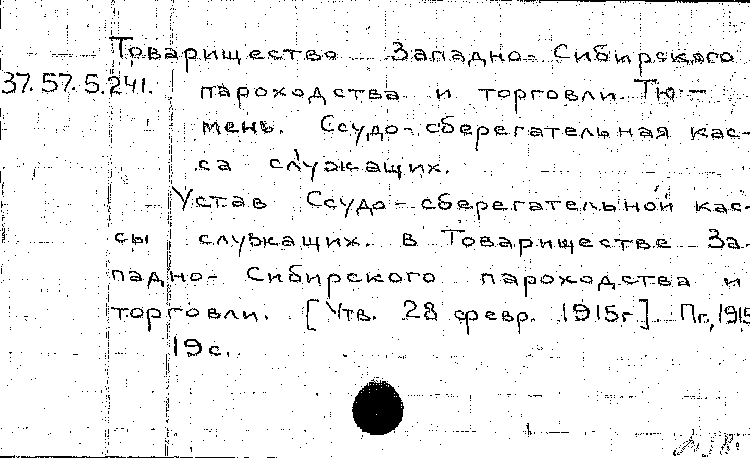 Товарищество Западно-Сибирского
37.57.5.241. пароходства и торговли. Тю-
мень. Ссудо-сберегательная кас-
са служащих.
Устав Ссудо-сберегательной кас-
сы служащих. в Товариществе За-
падно-Сибирского пароходства и
торговли. [Утв. 28 февр. 1915г]. Пг., 1915
19 с.